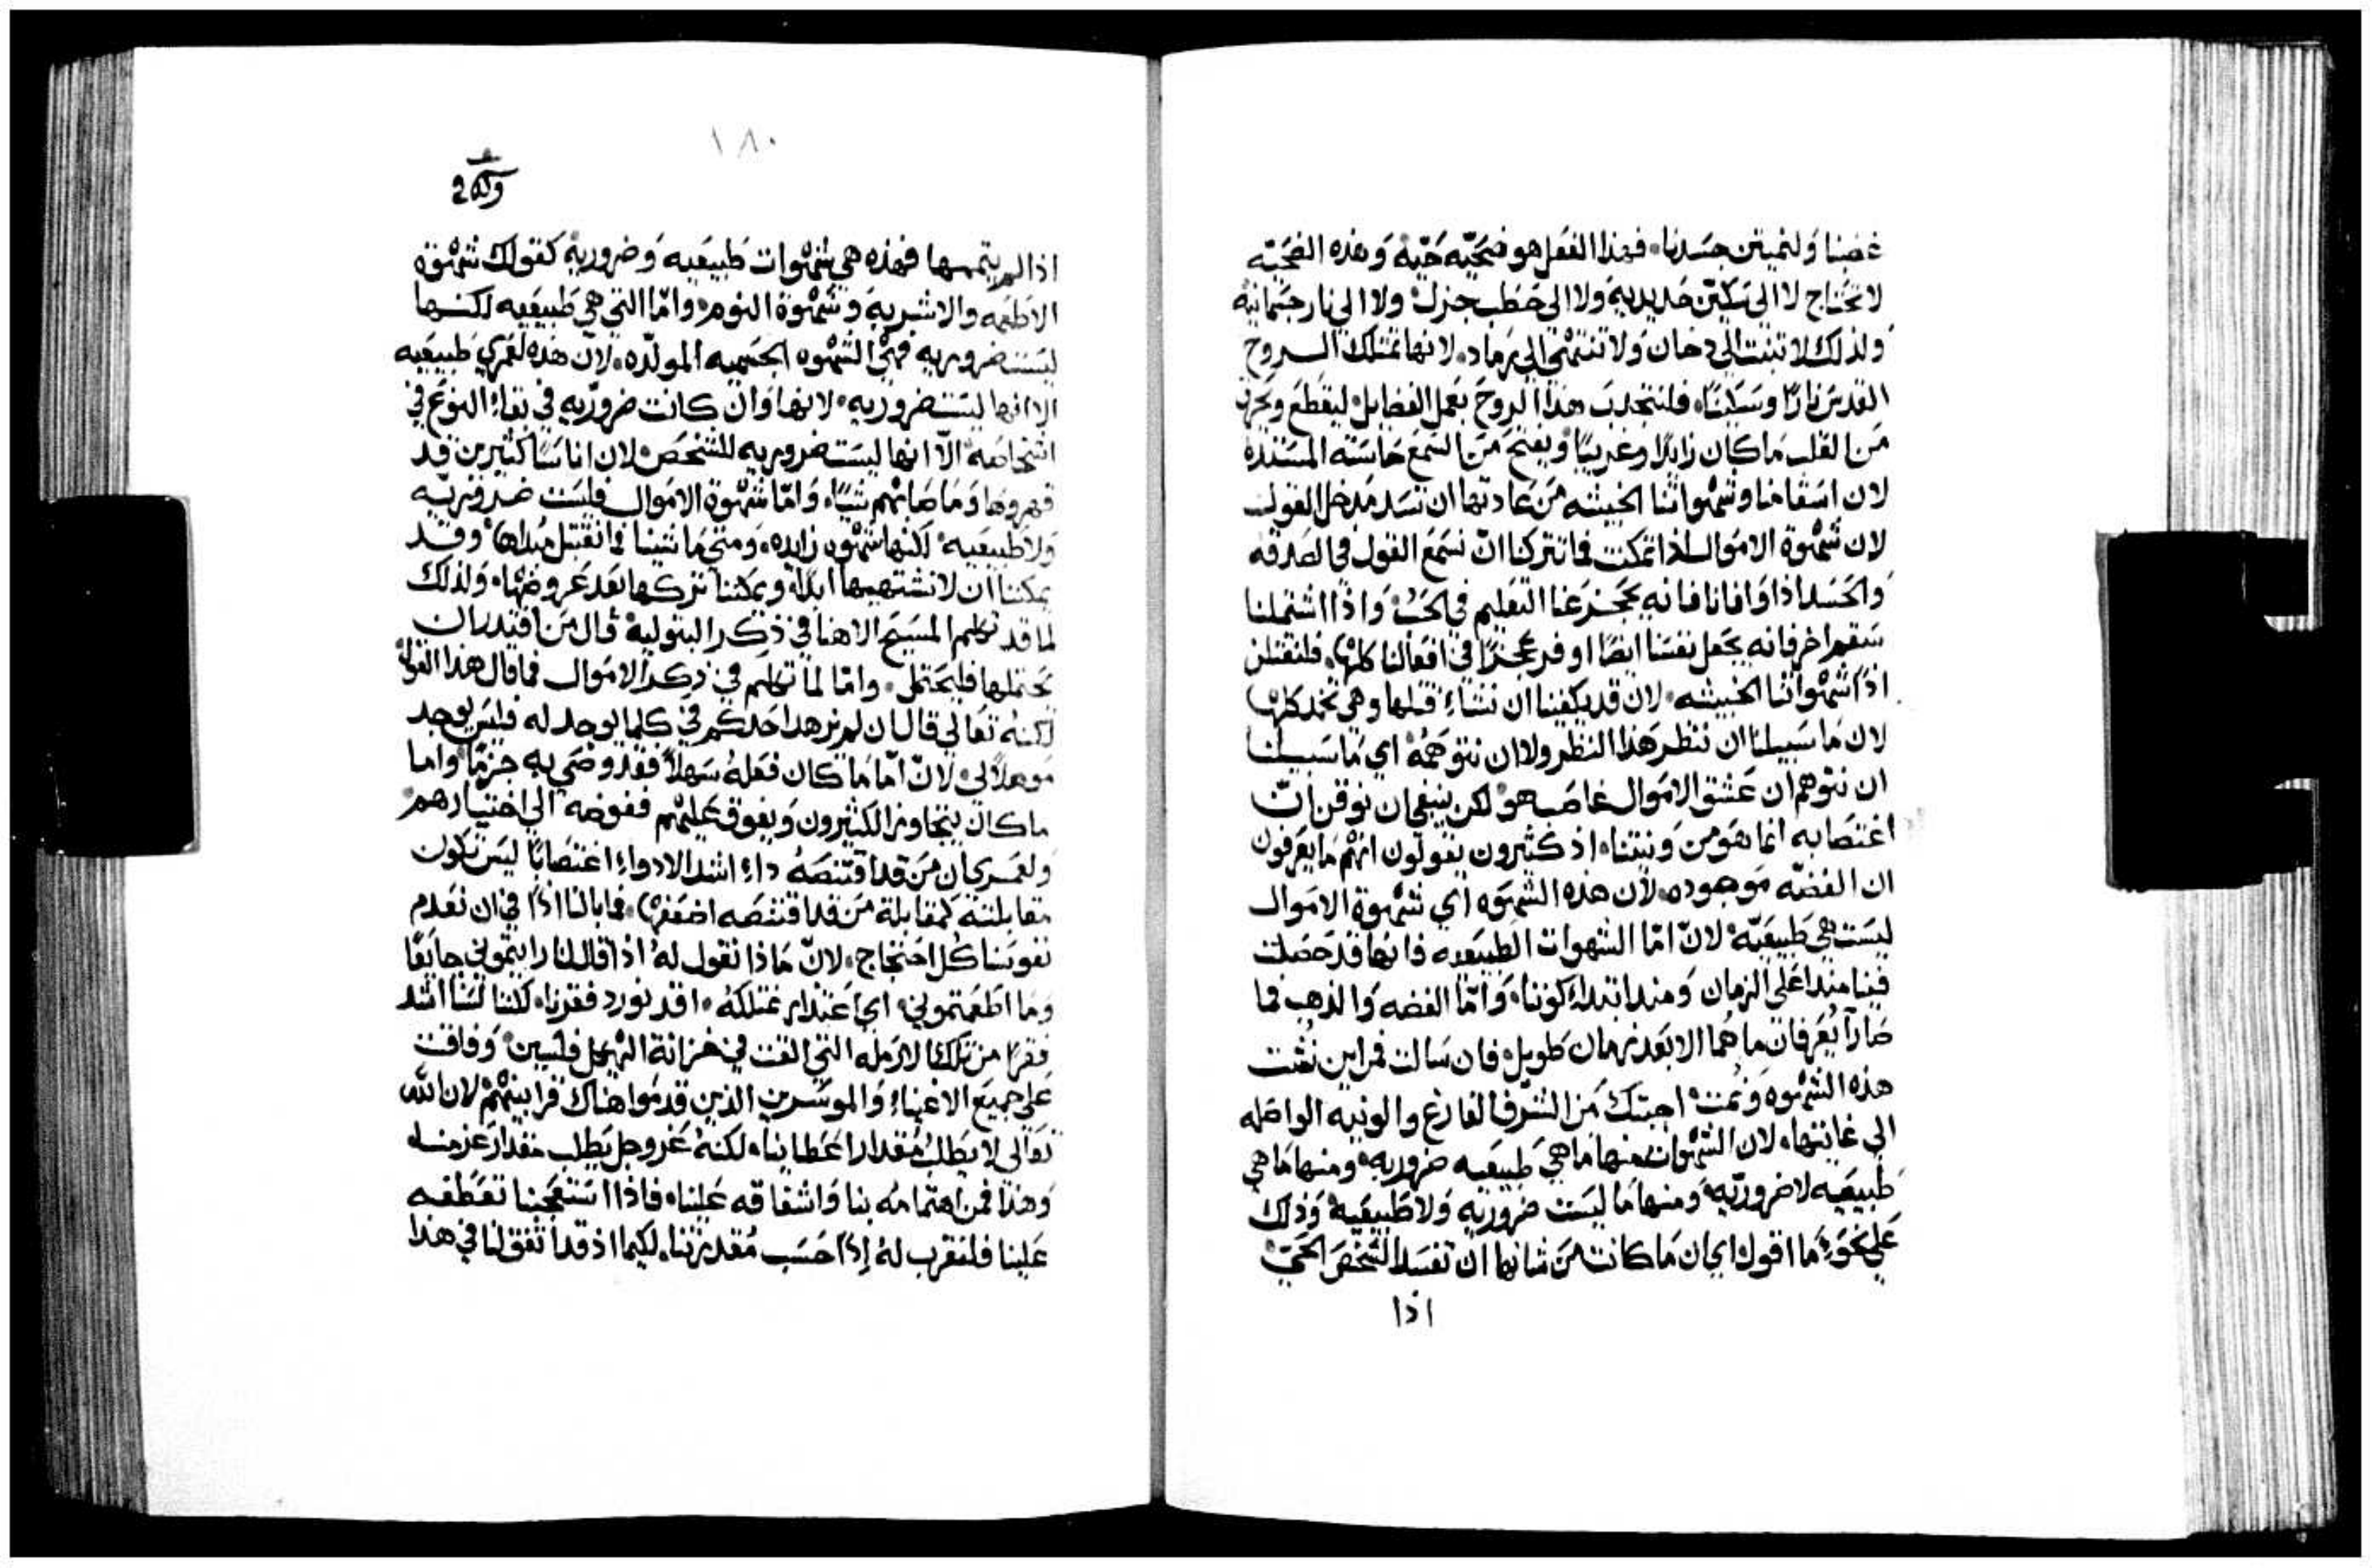 غضبنا ولنميتن جسدنا. فهذا الفعل هو ضحيّه حيّه وهذه الضحيّه
لا تحتاج لا الى سكين حديديه ولا الى حطب جزل ولا الى نار جسمانيه
ولذلك لا تنبث الي دخان ولا تنتهي الي رماد. لانها تمتلك الروح
القدس نارًا وسكينًا. فلنجتذب هذا الروح بعمل الفضايل ليقطع ويحرق
من القلب ما كان زايدًا وغريبًا ويفتح من السمع حاسته المستده
لان اسقامنا وشهواتنا الخبيثه من عادتها ان تسد مدخل القول
لان شهوة الاموال اذا تمكنت فما تتركنا انّ نسمع القول في الصدقه
والحسد اذا وافانا فانه يحجز عنا التعليم في الحب واذا اشتملنا
سقم اخر فانه يجعل نفسنا ايضًا اوفر عجزًا في افعالنا كلها. فلنقتلن
اذًا شهواتنا الخبيثه. لان قد يكفينا ان نشاء قتلها وهي تخمد كلها
لان ما سبيلنا ان ننظر هذا النظر ولا ان نتوهمه اي ما سبيلنا
ان نتوهم ان عشق الاموال غاصب هو لكن ينبغي ان نوقن انّ
اغتصابه انما هو من ونيتنا. اذ كثيرون يقولون انهم ما يعرفون
ان الفضّه موجوده. لان هذه الشهوه اي شهوة الاموال
ليست هي طبيعيّه لانّ امّا الشهوات الطبيعيه فانها قد حصلت
فينا منذ اعلى الزمان ومنذ ابتداء كوننا. وامّا الفضه والذهب فما
صارا يُعرفان ما هُما الا بعد زمان طويل. فان سالت فمن اين نشت
هذه الشهوه ونمت اجبتك من الشرف الفارغ والونيه الواصله
الي غايتها. لان الشهوات منها ما هي طبيعيه ضروريه ومنها ما هي
طبيعيه لا ضروريّه ومنها ما ليست ضروريه ولا طبيعيه وذلك
على نحو ما اقول اي ان ما كانت من شانها ان تفسد الشخص الحيّ
اذا
١٨٠
اذا لم يتممها فهذه هي شهوات طبيعيه وضروريه كقولك شهوة
الاطعمه والاشربه وشهوة النوم. وامّا التي هي طبيعيه لكنها
ليست ضروريه فهي الشهوه الجسميه المولّده. لانّ هذه لعمري طبيعيه
الا انها ليست ضروريه. لانها وان كانت ضروريّه في بقاء النوع في
اشخاصه الّا انها ليست ضروريه للشخص لان اناسًا كثيرين قد
قهروها وما ضاتهم شيًا. وامّا شهوة الاموال فليست ضروريّه
ولا طبيعيه لكنها شهوه زايده. ومتى ما شينا فما نقتبل مبداها وقد
يمكننا ان لا نشتهيها ابدًا. ويمكننا تركها بعد عروضها. ولذلك
لما قد تكلم المسيح الاهنا في ذكر البتوليه قال من اقتدر ان
يحتملها فليحتمل. وامّا لما تكلم في ذكر الاموال فما قال هذا القول
لكنه تعالي قال ان لم يزهد احدكم في كلما يوجد له فليس يوجد
موهلًا لي. لانّ امّا ما كان فعله سهلًا فقد وصّى به جزمًا واما
ما كان يتجاوز الكثيرون ويفوق عليهم ففوضه الي اختيارهم
ولعمري ان من قد اقتنصه داء اشد الادواء اغتصابًا ليس تكون
مقابلته كمقابلة من قد اقتنصه اضعفها. فما بالنا اذًا في ان نعدم
نفوسنا كل احتجاج. لانّ ماذا نقول له اذا قال لنا رايتموني جايعًا
وما اطعمتموني. اي اعتذار نمتلكه. اقد نورد فقرنا. لكننا لسنا اشد
فقرًا من تلك الارمله التي القت في خزانة الهيكل فلسين وفاقت
على جميع الاغنياء والموسرين الذين قدموا هناك قرابينهم لان الله
تعالى لا يطلب مقدار اعطايانا. لكنه عز وجل يطلب مقدار عزمنا
وهذا فمن اهتمامه بنا واشفاقه علينا. فاذا استعجبنا تعطفه
علينا فلنقرب له إذًا حسب مقدرتنا. لكيما اذ قد اتفق لنا في هذا